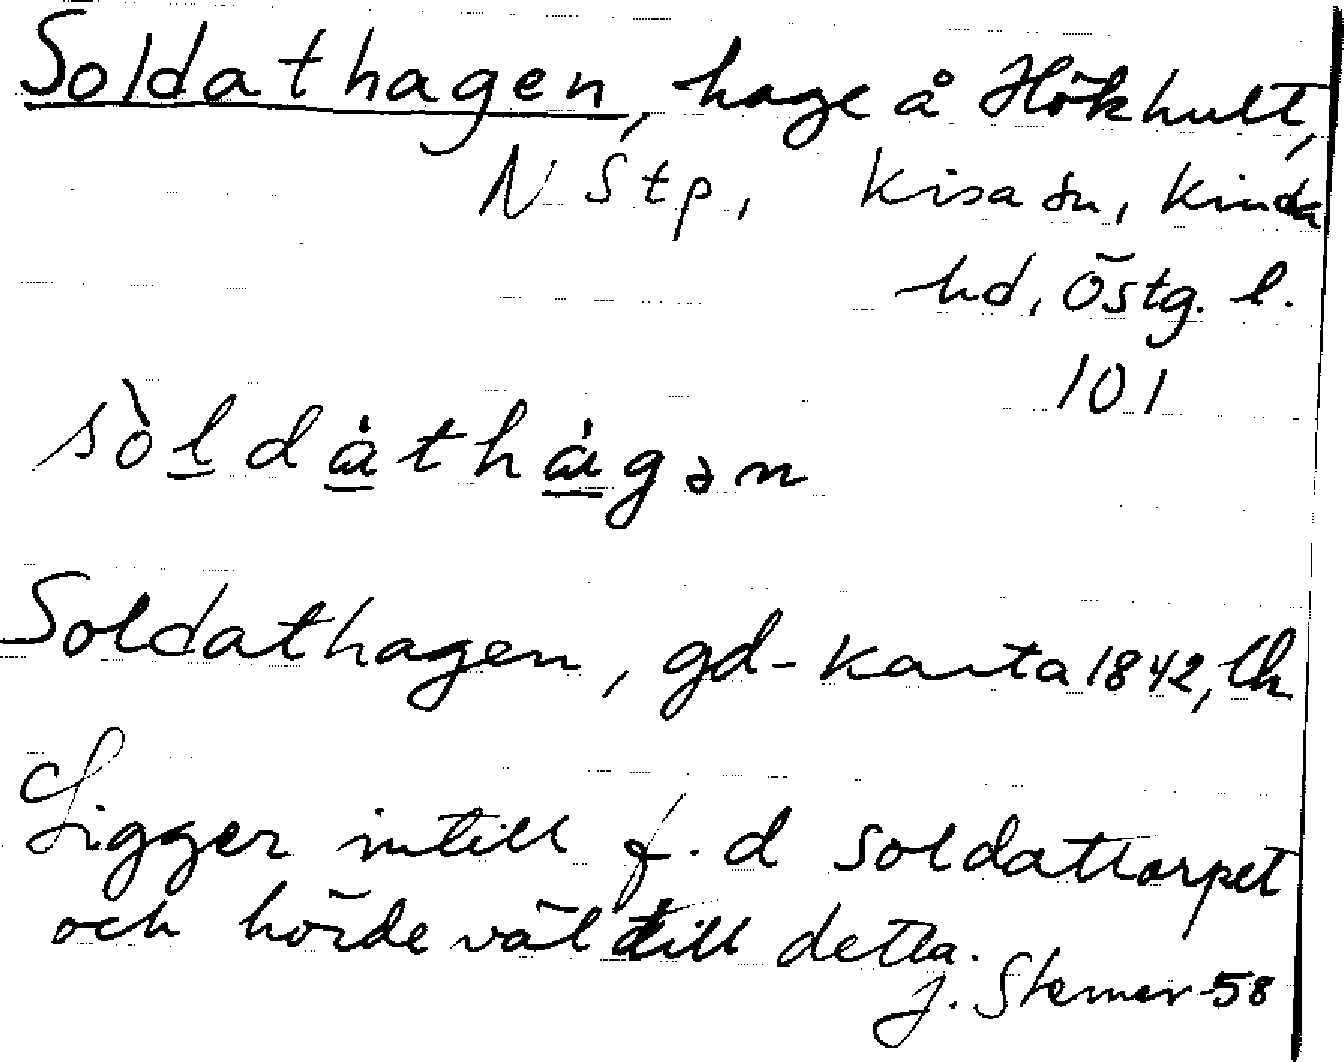 Soldathagen, hage å Hökhult,
N Stp, Kisa sn, Kinda
hd, Östg. l.
101
sòldàthàgən
Soldathagen, gd-karta 1842, lk
Ligger intill f.d soldattorpet
och hörde väl till detta.
J. Sterner -58